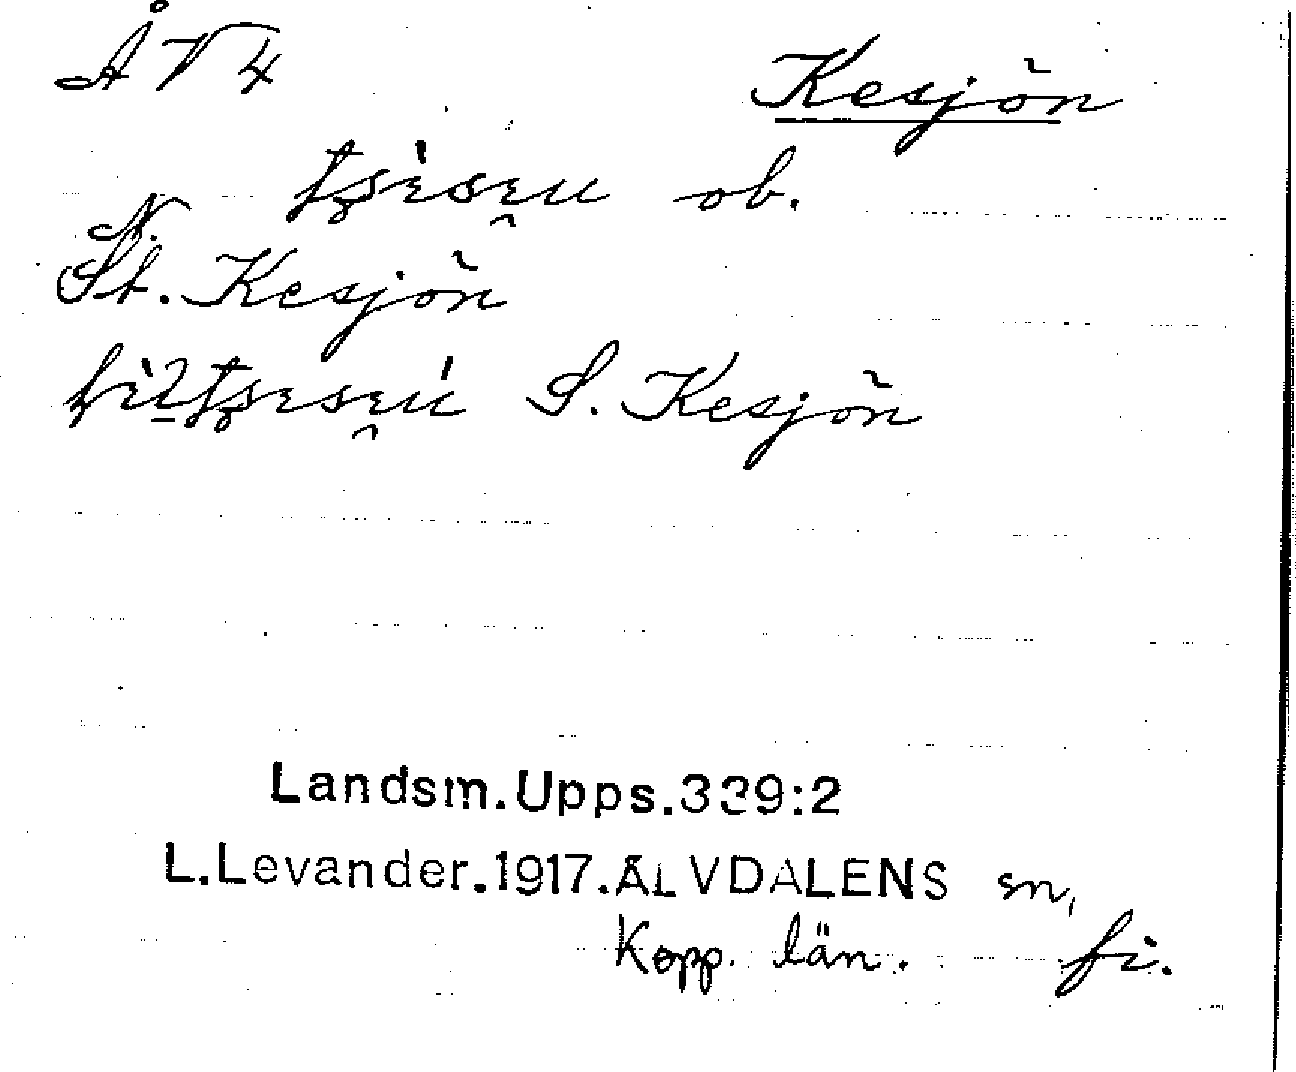 Å V 4
Kesjön
ob.
N.
St. Kesjön
S. Kesjön
Landsm.Upps.339:2
L.Levander.1917.ÄLVDALENS sn,
Kopp. län. fi.